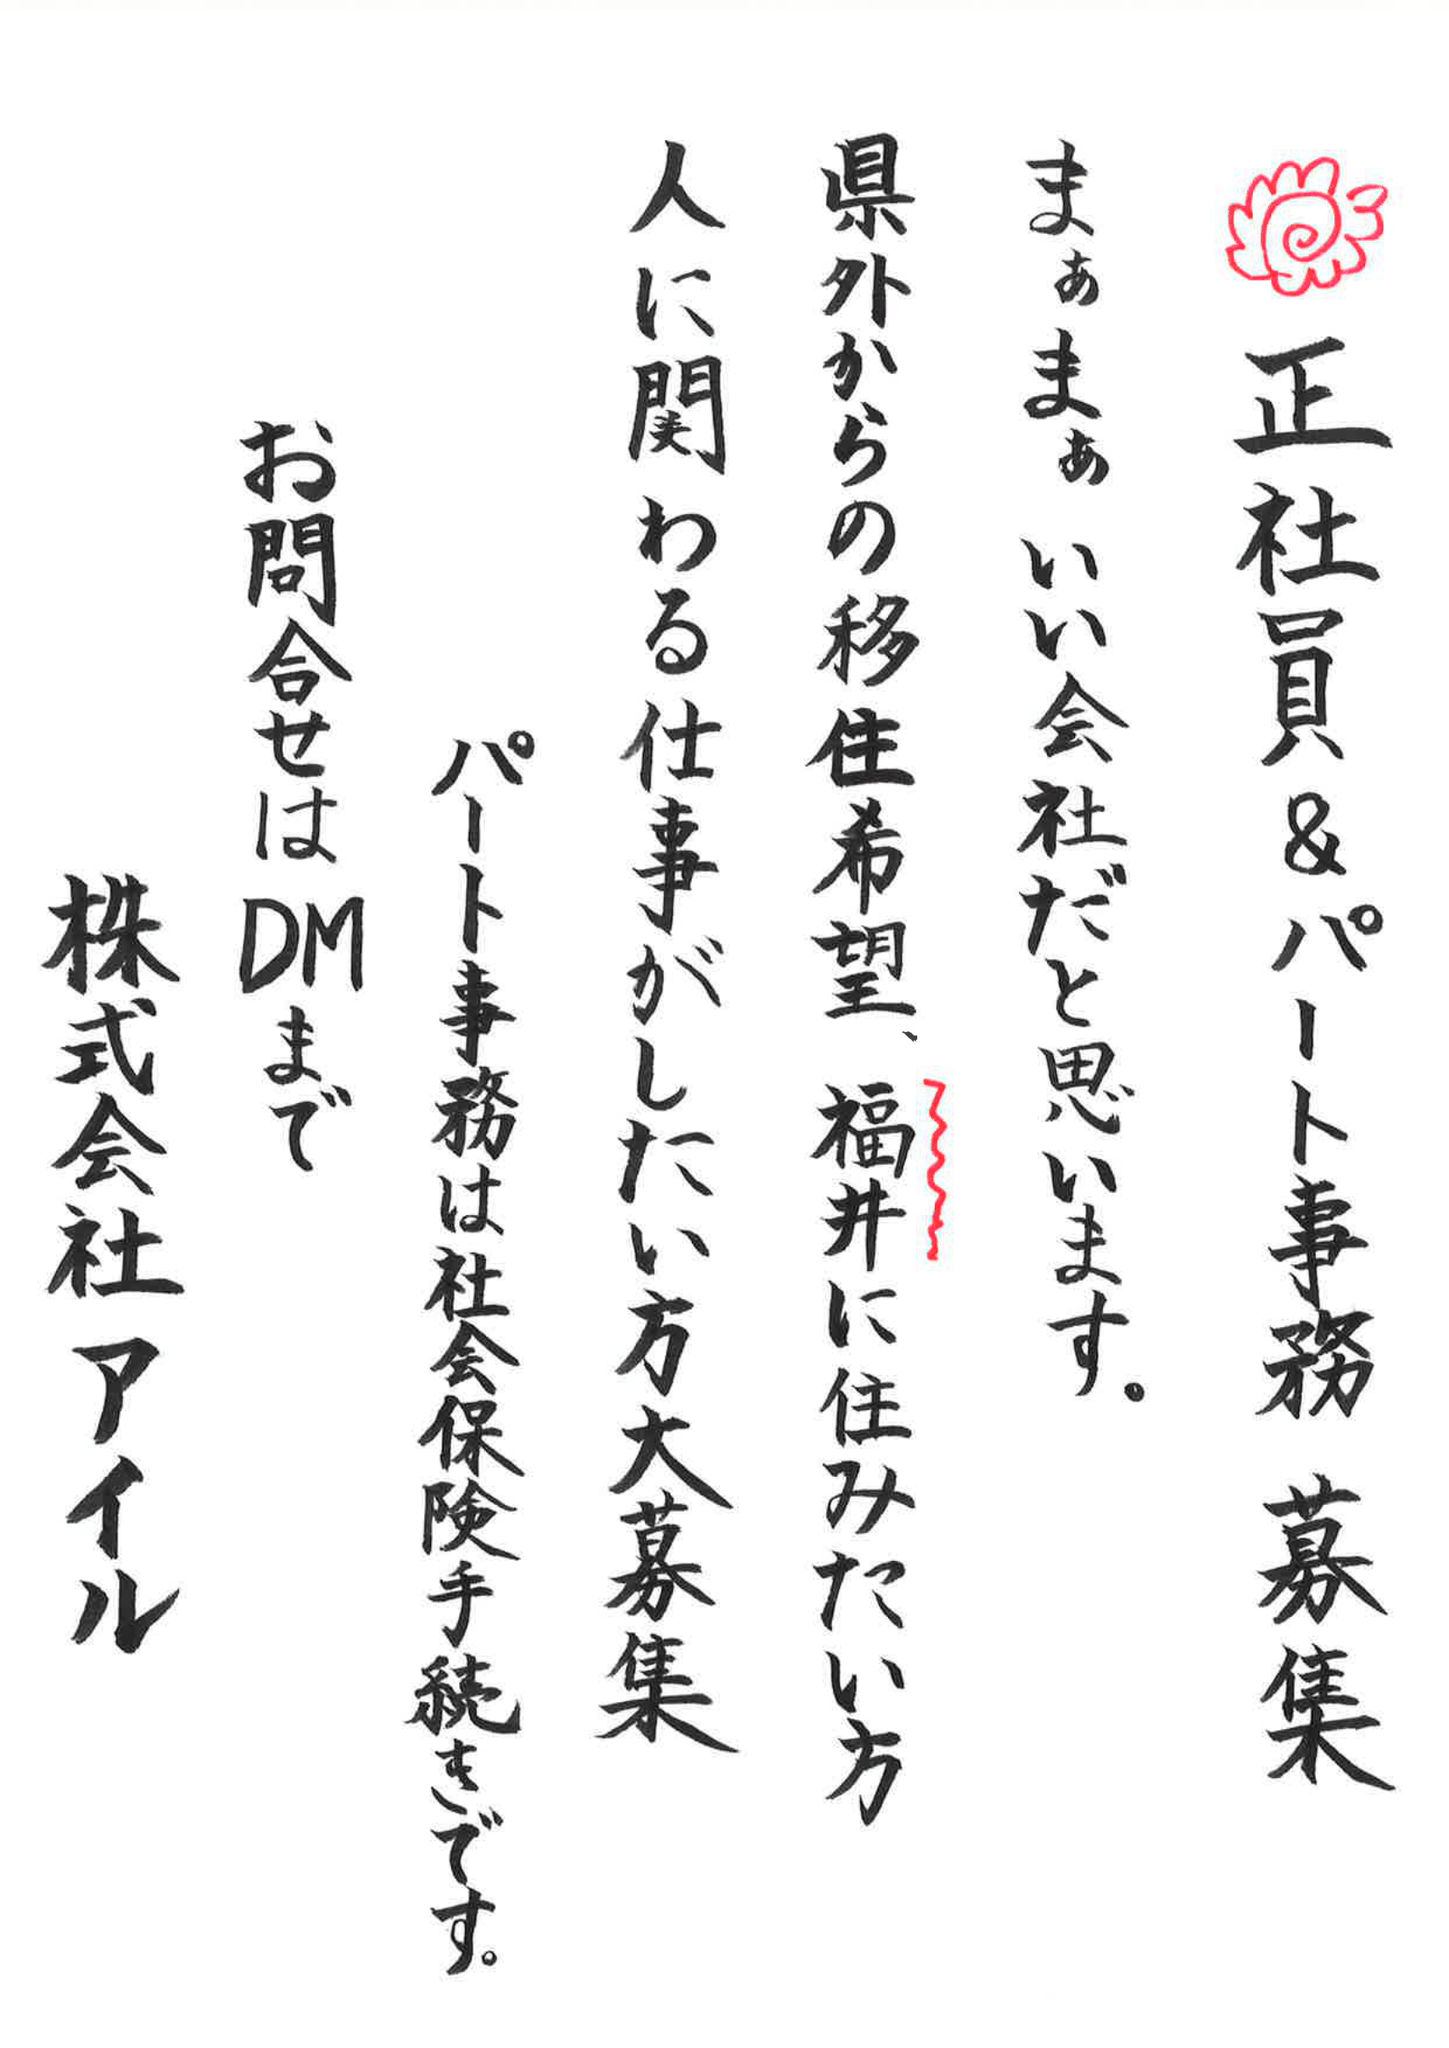 正社員&パート事務 募集
まぁまぁ いい会社だと思います。
県外からの移住希望、福井に住みたい方
人に関わる仕事がしたい方大募集
パート事務は社会保険手続きです。
お問合せはDMまで
株式会社アイル